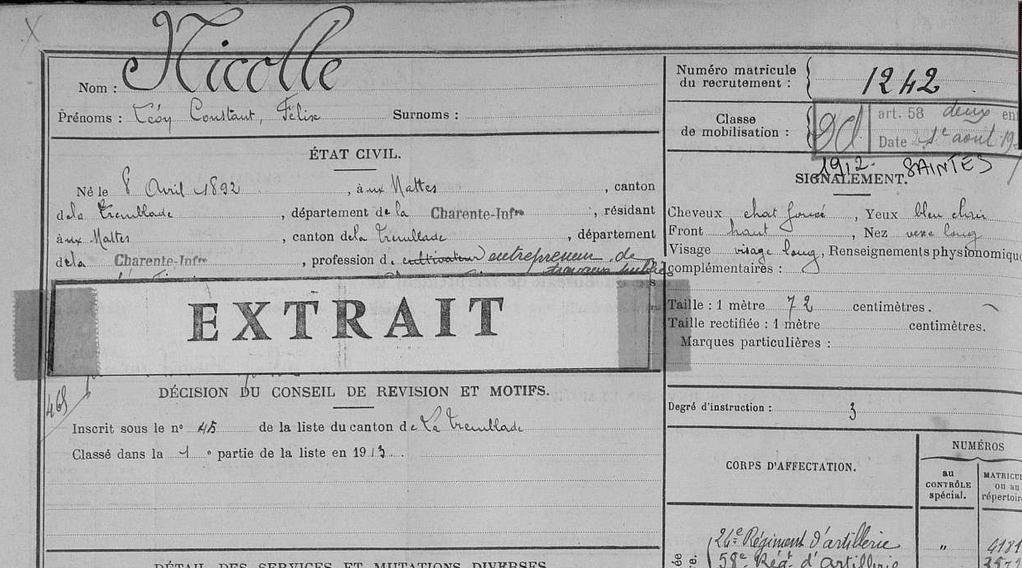 Nom : Nicolle
Prénoms : Léon Constant, Félix Surnoms :
ÉTAT CIVIL.
Né le 8 Avril 1892, à aux Mattes, canton
de la Tremblade, département de la Charente-Infre, résidant
à aux Mattes, canton de la Tremblade, département
de la Charente-Infre, profession d cultivateur entrepreneur de
travaux
EXTRAIT
468
DÉCISION DU CONSEIL DE REVISION ET MOTIFS.
Inscrit sous le n° 45 de la liste du canton de La Tremblade
Classé dans la 1° partie de la liste en 1913.
DÉTAIL DES SERVICES ET MUTATIONS DIVERSES
Numéro matricule
du recrutement : 1242
Classe
de mobilisation :
art. 58 deux en
Date 1e août 19
1912. SAINTES
SIGNALEMENT.
Cheveux chat foncé, Yeux bleu clair
Front haut, Nez long
Visage visage long, Renseignements physionomique
complémentaires :
Taille : 1 mètre 72 centimètres.
Taille rectifiée : 1 mètre centimètres.
Marques particulières :
Degré d'instruction : 3
CORPS D'AFFECTATION.
NUMÉROS
au
CONTRÔLE
spécial.
MATRICU
ou au
répertoire
24e Régiment d'artillerie "
58e Régt d'artillerie